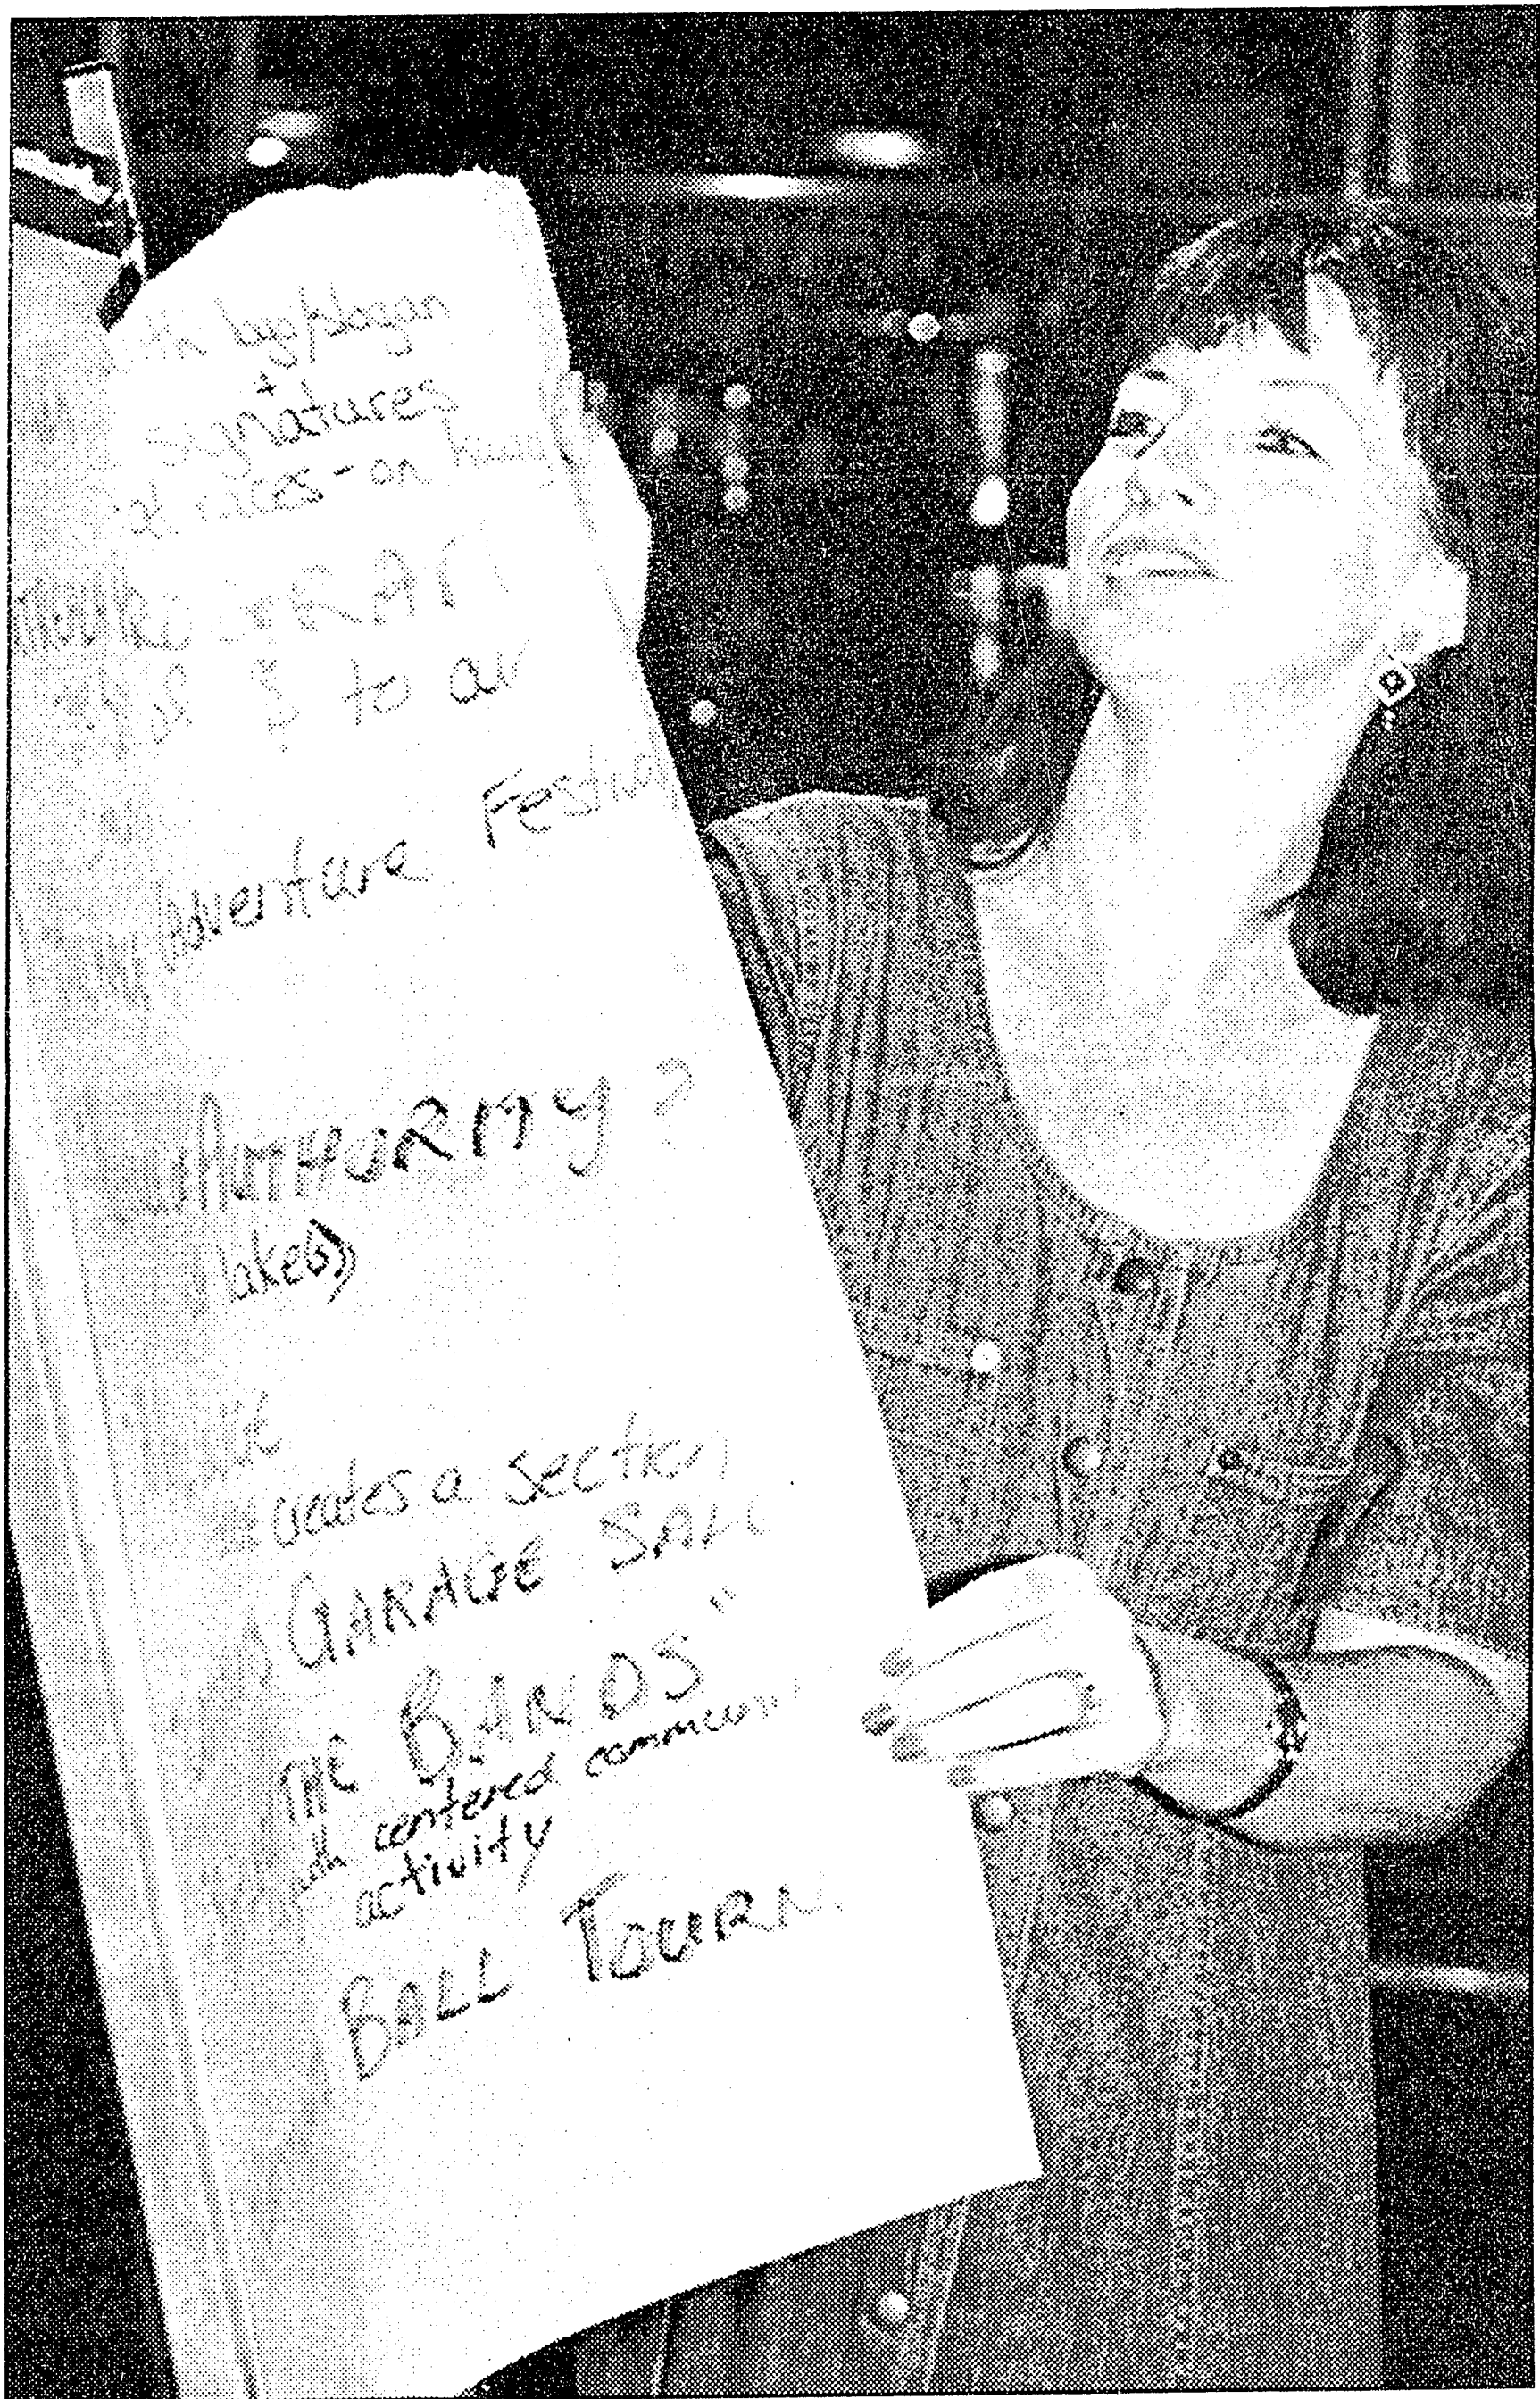 logo/slogan
+
signatures
at races - on
CRAFT
$ to
Adventure Festiv
AUTHORITY ?
lake(s))
creates a section
GARAGE SALE
THE BANDS"
centered commun
activity
BALL TOURN